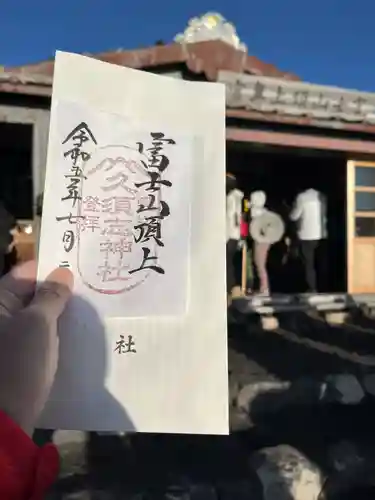 富士山頂上
久須志神社
登拜
令和五年七月二
社